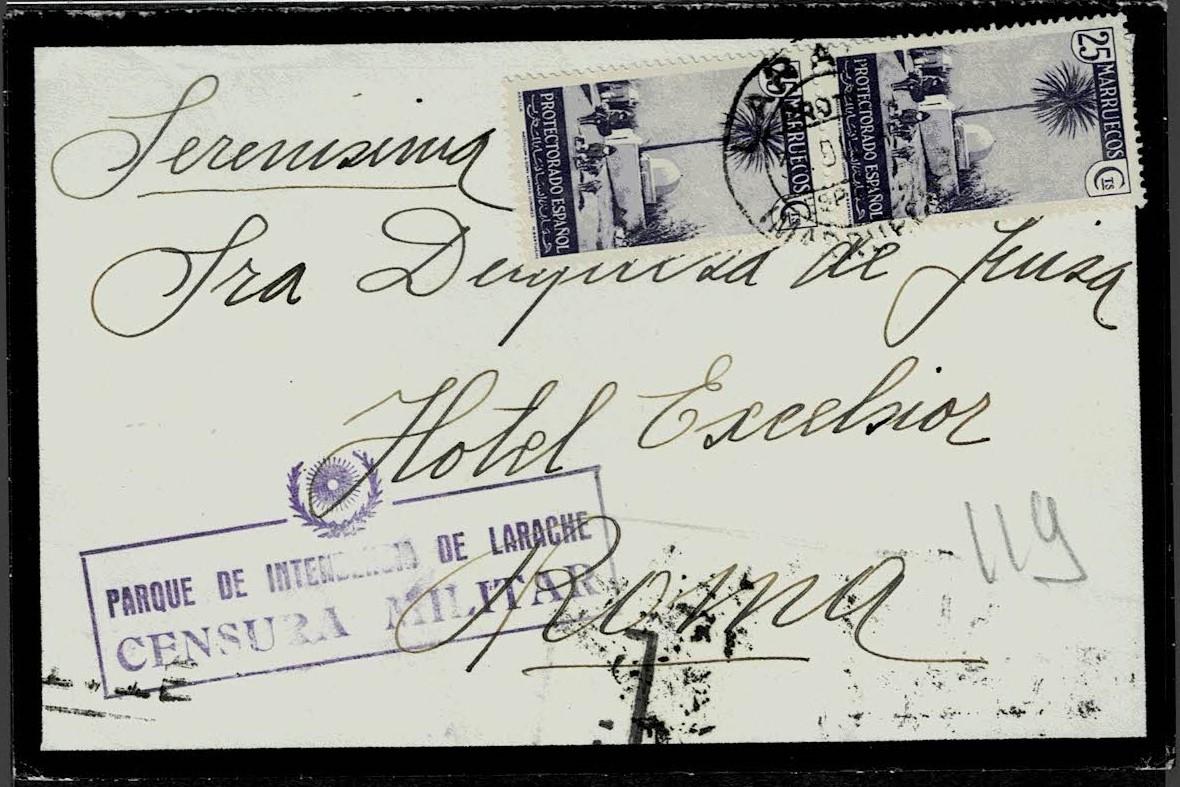 Serenisima
Sra Duquesa de Guisa
Hotel Excelsior
Roma
119
PARQUE DE INTENDENCIA DE LARACHE
CENSURA MILITAR
25 MARRUECOS Cts
PROTECTORADO ESPAÑOL
25 MARRUECOS Cts
PROTECTORADO ESPAÑOL